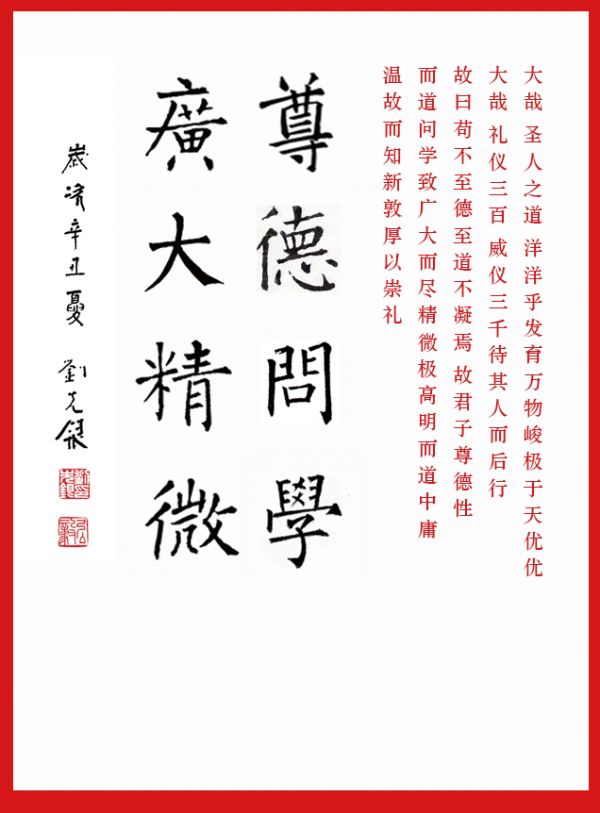 大哉 圣人之道 洋洋乎发育万物峻极于天优优
大哉 礼仪三百 威仪三千待其人而后行
故曰苟不至德至道不凝焉 故君子尊德性
而道问学致广大而尽精微极高明而道中庸
温故而知新敦厚以崇礼
尊德問學
廣大精微
歲次辛丑夏 劉克